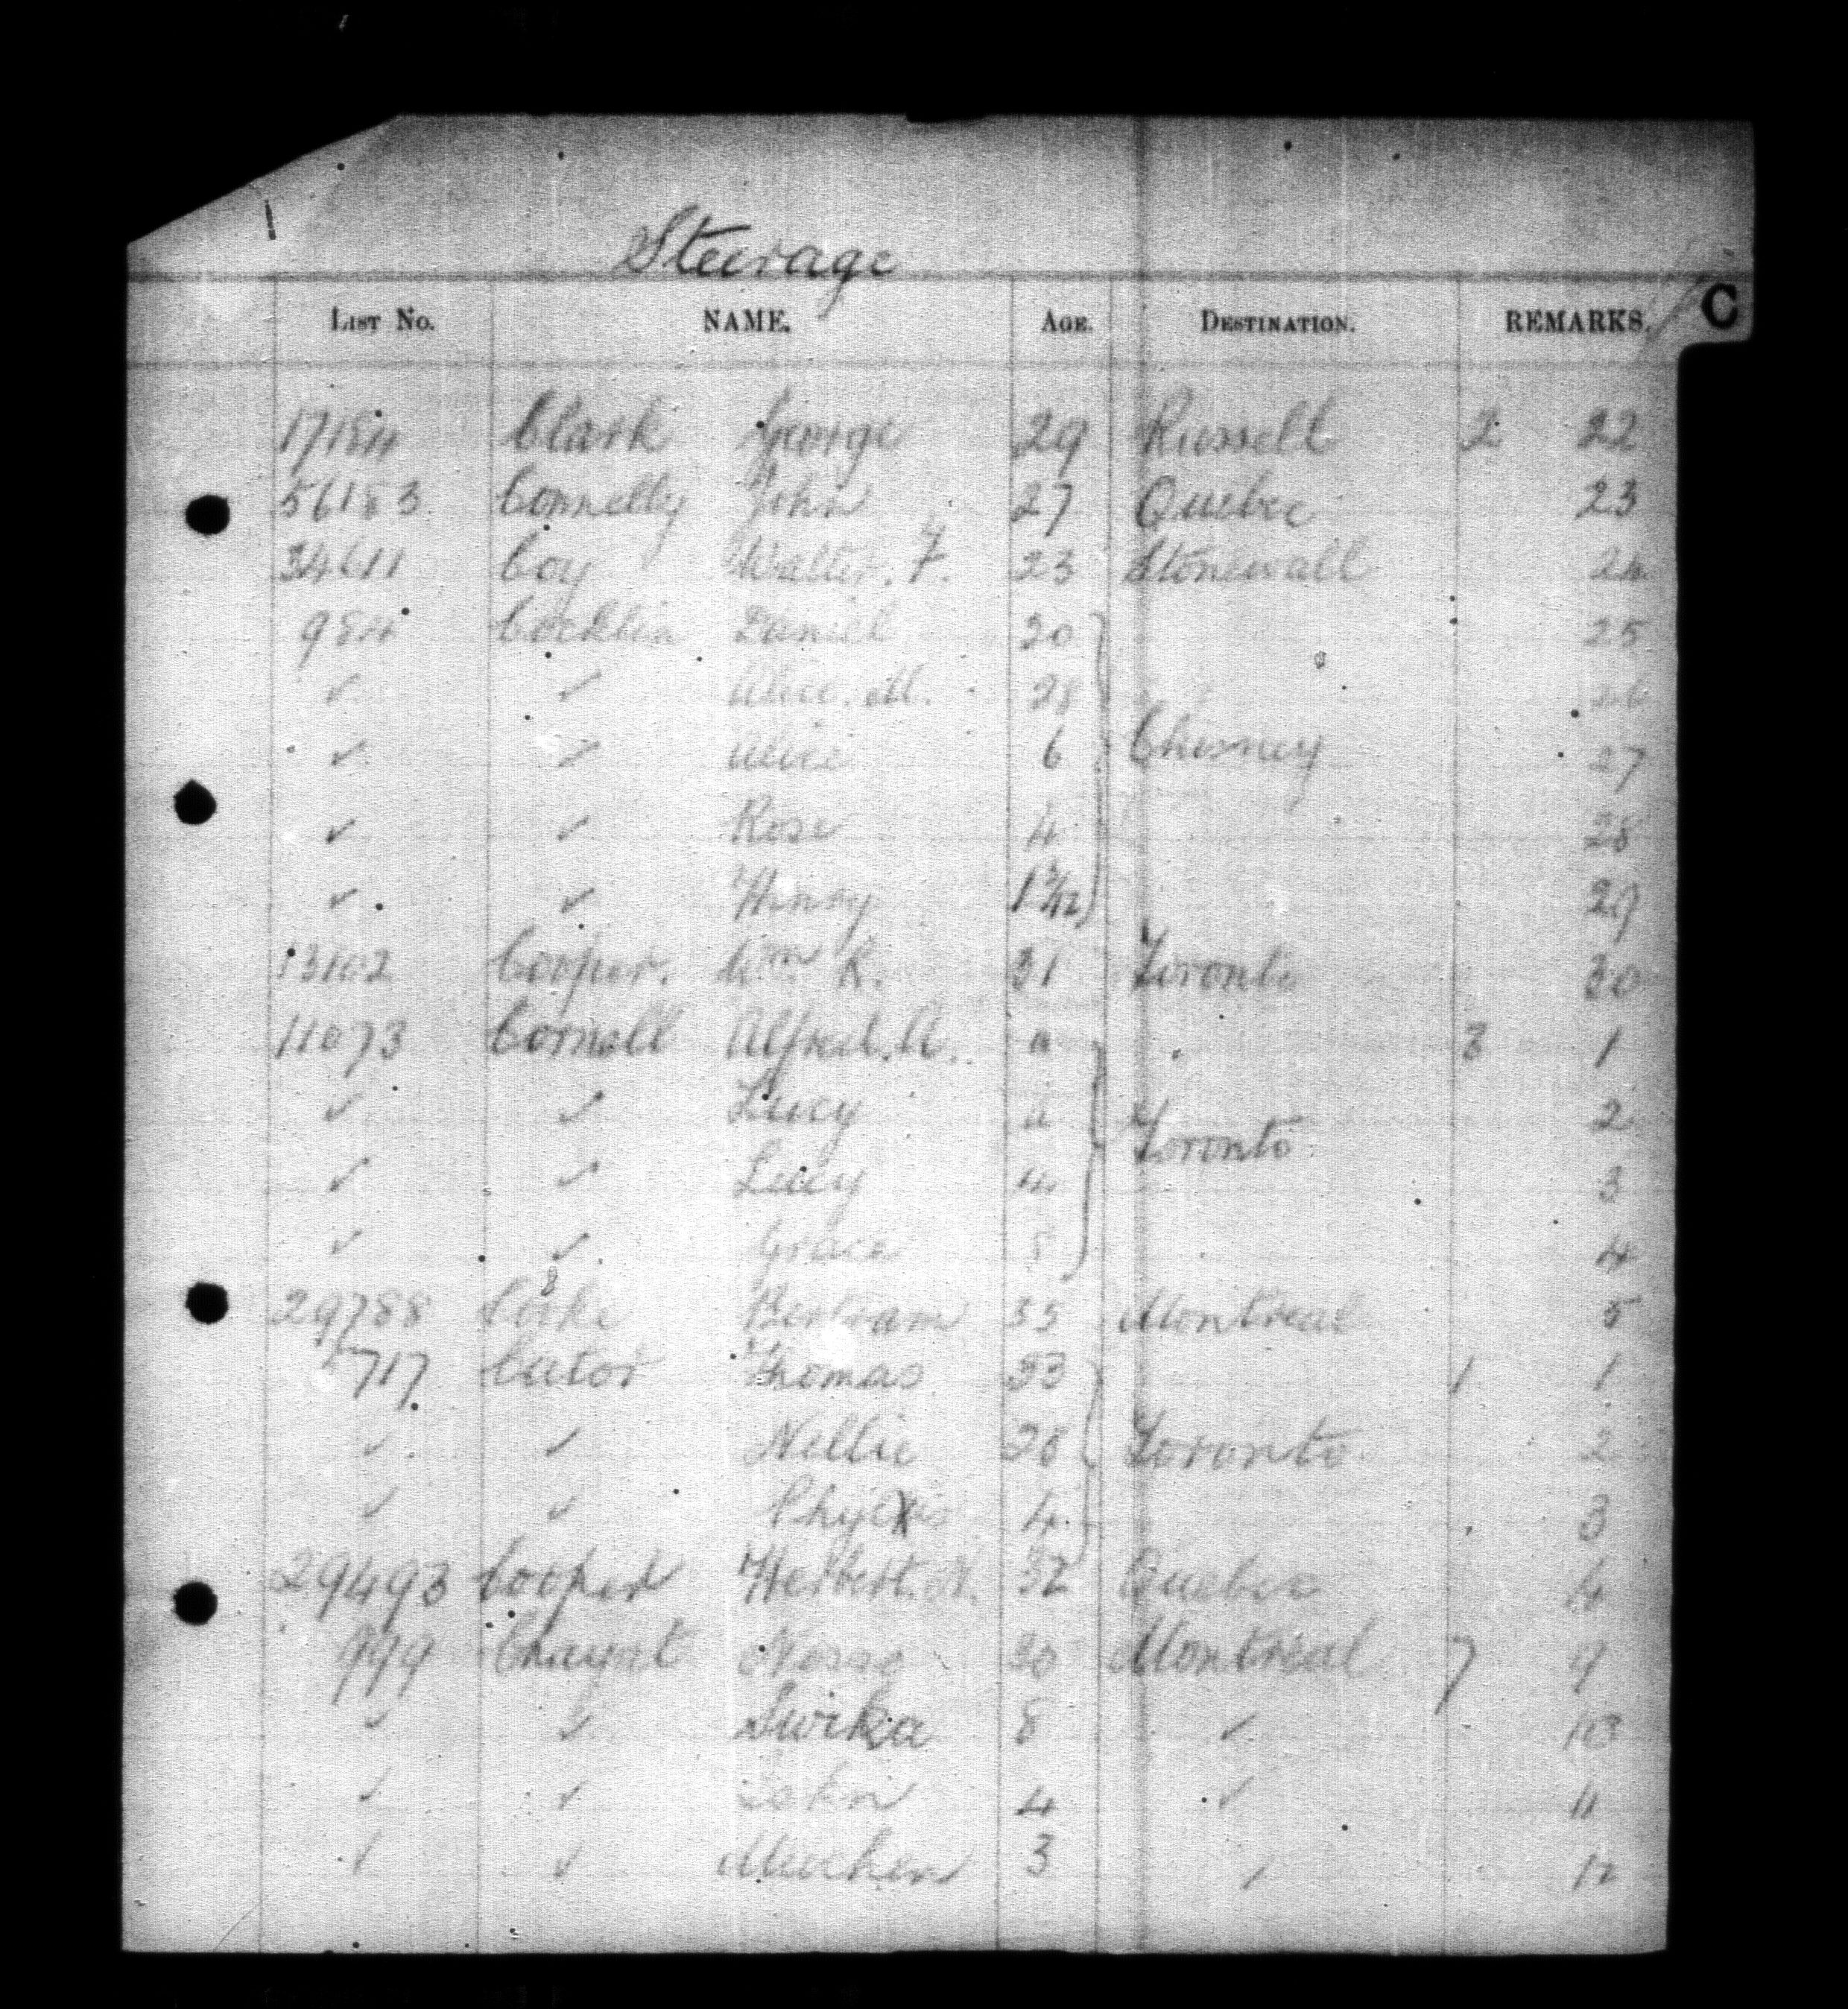 Steerage
LIST No. NAME. AGE. DESTINATION. REMARKS. C
17184 Clark George 29 Russell 2 22
56183 Connelly John 27 Quebec 23
34611 Coy Walter. F. 23 Stonewall 24
984 Cocklin Daniel 30 25
✓ ✓ Alice. M. 28 26
✓ ✓ Alice 6 Chesney 27
✓ ✓ Rose 4 28
✓ ✓ Henry 1 3/12 29
13102 Cooper. Wm. K. 31 Toronto 30
11073 Cornell Alfred. A. a 3 1
✓ ✓ Lucy a Toronto 2
✓ ✓ Lucy 4 3
✓ ✓ Grace 8 4
29788 Cooke Bertram 35 Montreal 5
717 Cator Thomas 33 1 1
✓ ✓ Nellie 28 Toronto 2
✓ ✓ 4 3
29493 Cooper Herbert. 32 Quebec 4
999 30 Montreal 7 9
✓ ✓ Swika 8 ✓ 10
✓ ✓ 4 ✓ 11
✓ ✓ 3 ✓ 12